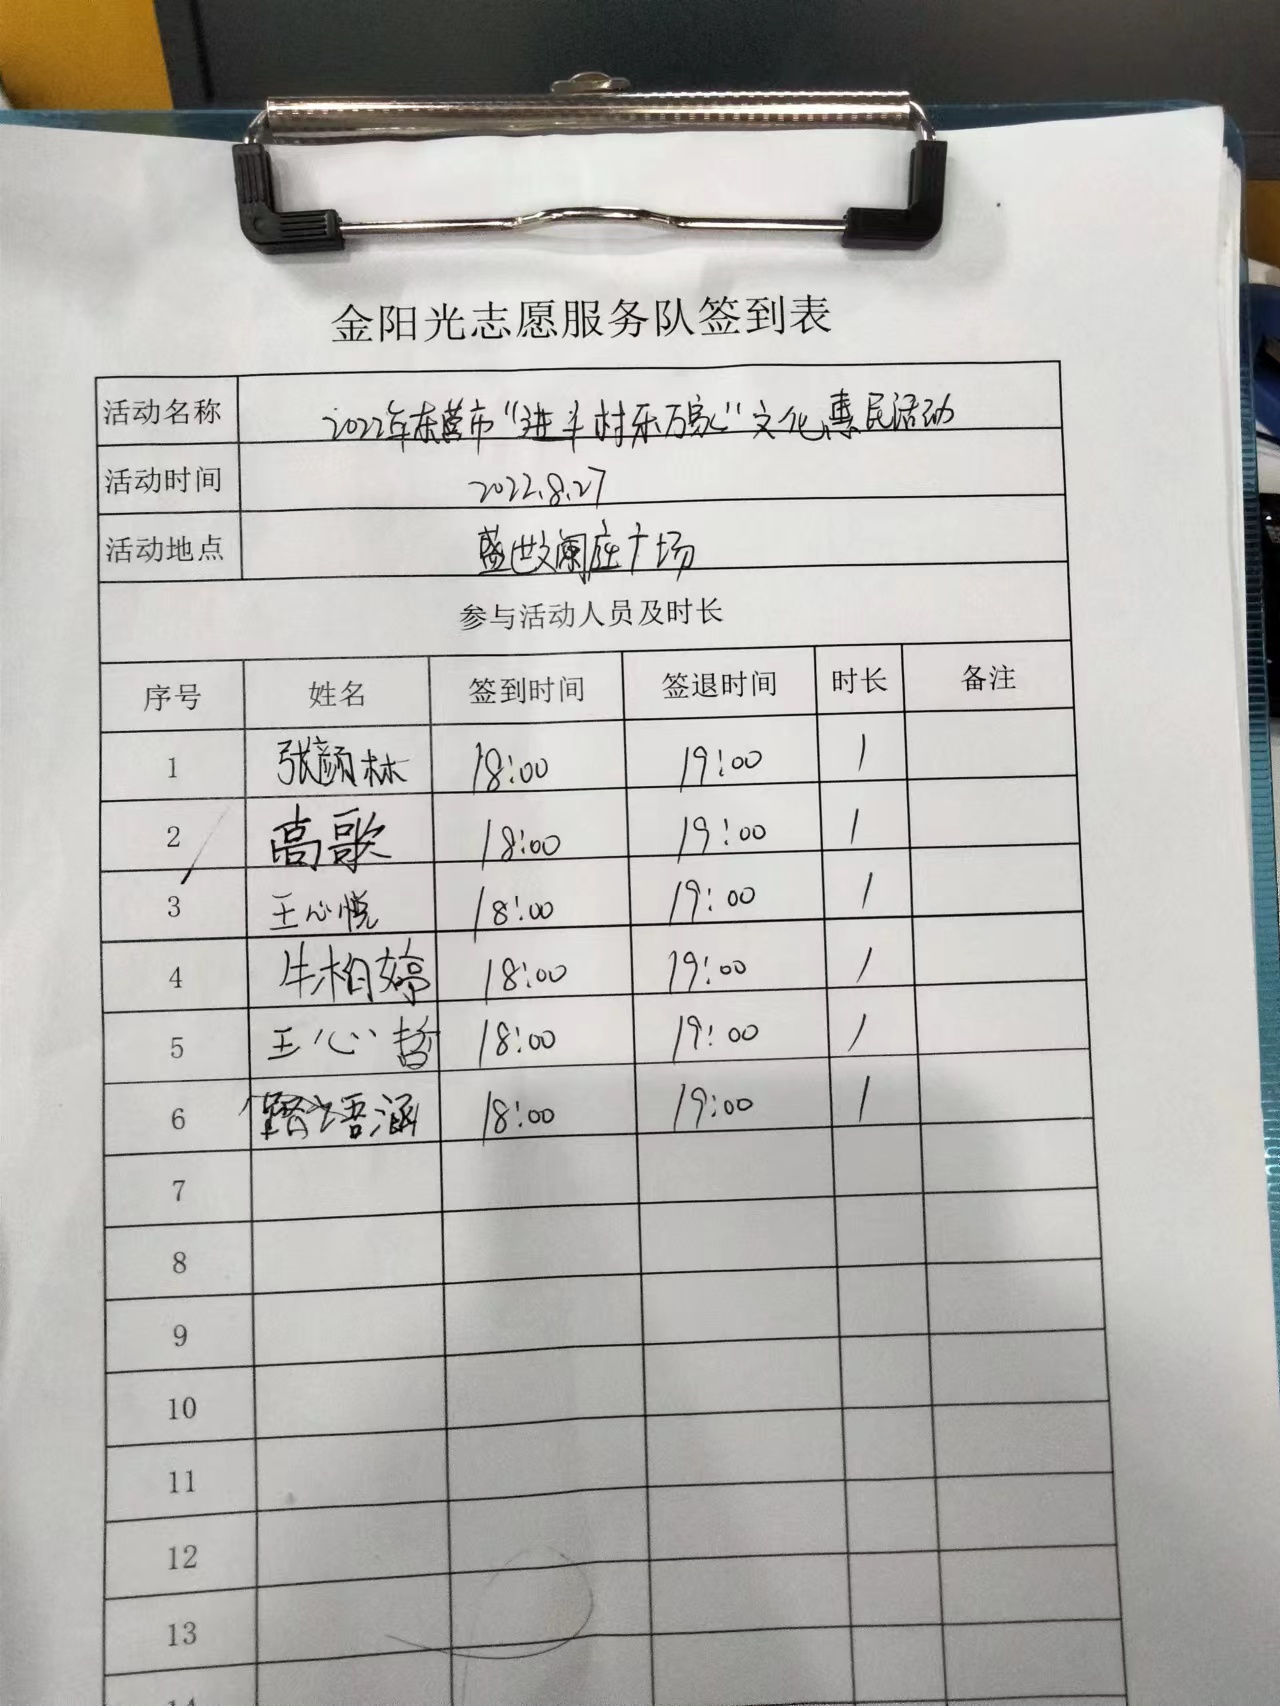 金阳光志愿服务队签到表
活动名称 2022年东营市“进乡村乐万家”文化惠民活动
活动时间 2022.8.27
活动地点 盛世 广场
参与活动人员及时长
序号 姓名 签到时间 签退时间 时长 备注
1 张颜林 18:00 19:00 1
2 高歌 18:00 19:00 1
3 王心悦 18:00 19:00 1
4 牛柏婷 18:00 19:00 1
5 王心哲 18:00 19:00 1
6 18:00 19:00 1
7
8
9
10
11
12
13
14